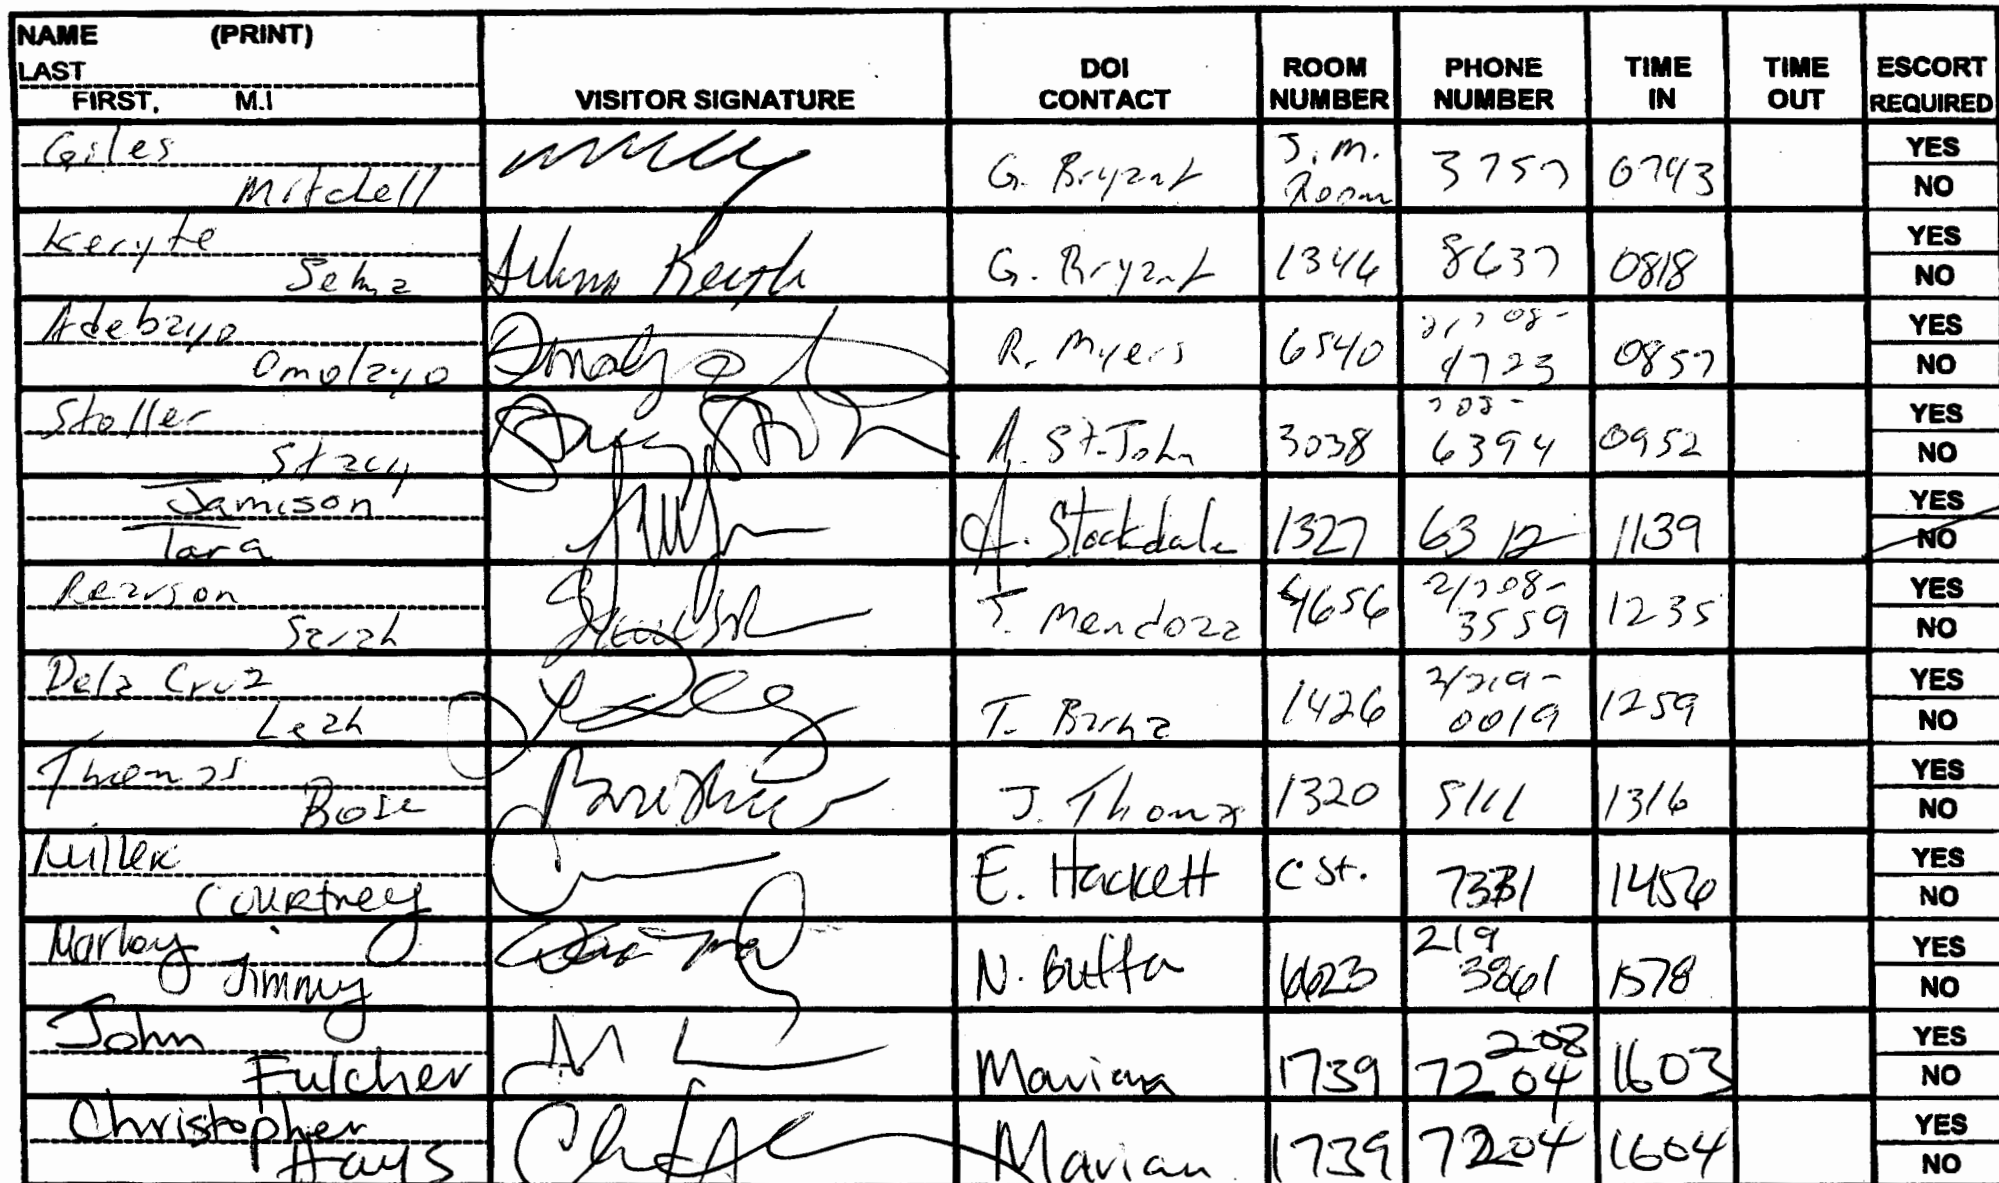 NAME (PRINT)
LAST
FIRST, M.I
VISITOR SIGNATURE
DOI CONTACT
ROOM NUMBER
PHONE NUMBER
TIME IN
TIME OUT
ESCORT REQUIRED
Giles
Mitchell
G. Bryant
J.M. Room
3757
0743
YES
NO
Keryte
Selma
G. Bryant
1346
8637
0818
YES
NO
Adebayo
Omolayo
R. Myers
6540
2/208-
4723
0857
YES
NO
Stoller
Stacy
A. St. John
3038
208-
6394
0952
YES
NO
Jamison
Tara
A. Stockdale
1327
6312
1139
YES
NO
Pearson
Sarah
T. Mendoza
4656
2/208-
3559
1235
YES
NO
Dela Cruz
Leah
T.
1426
2/219-
0019
1259
YES
NO
Thomas
Bose
J. Thomas
1320
5111
1316
YES
NO
Miller
Courtney
E. Hackett
C St.
1456
YES
NO
Marley
Jimmy
N. Buffa
6623
219
3861
YES
NO
John
Fulcher
Marian
1739
208
7204
1603
YES
NO
Christopher
Hays
Marian
1739
7204
1604
YES
NO